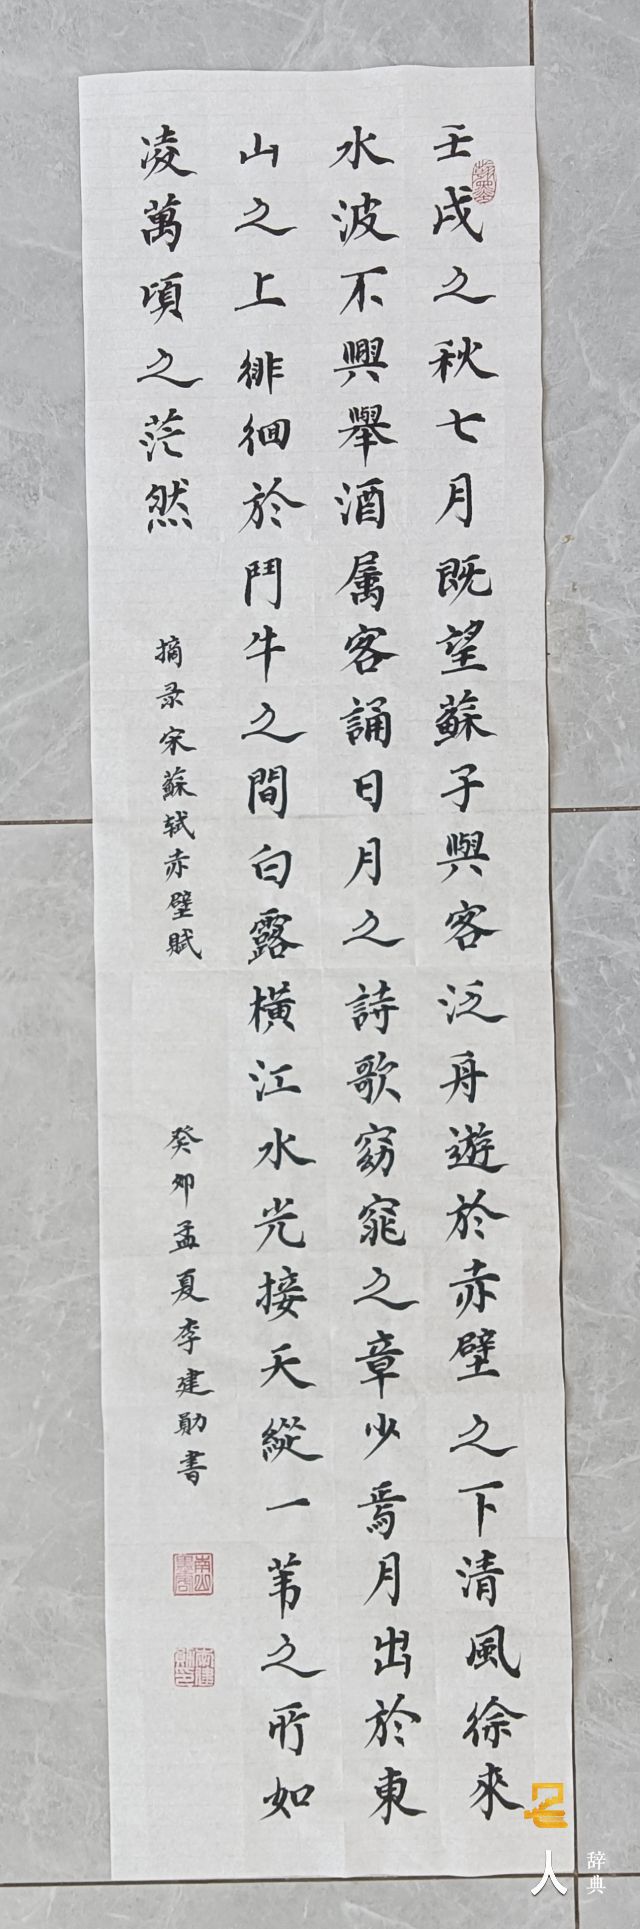 壬戌之秋七月既望蘇子與客泛舟遊於赤壁之下清風徐來
水波不興舉酒属客誦日月之詩歌窈窕之章少焉月出於東
山之上徘徊於鬥牛之間白露橫江水光接天縱一苇之所如
凌萬頃之茫然
摘录宋蘇轼赤壁賦
癸卯孟夏李建勛書
翰墨
人
辞典